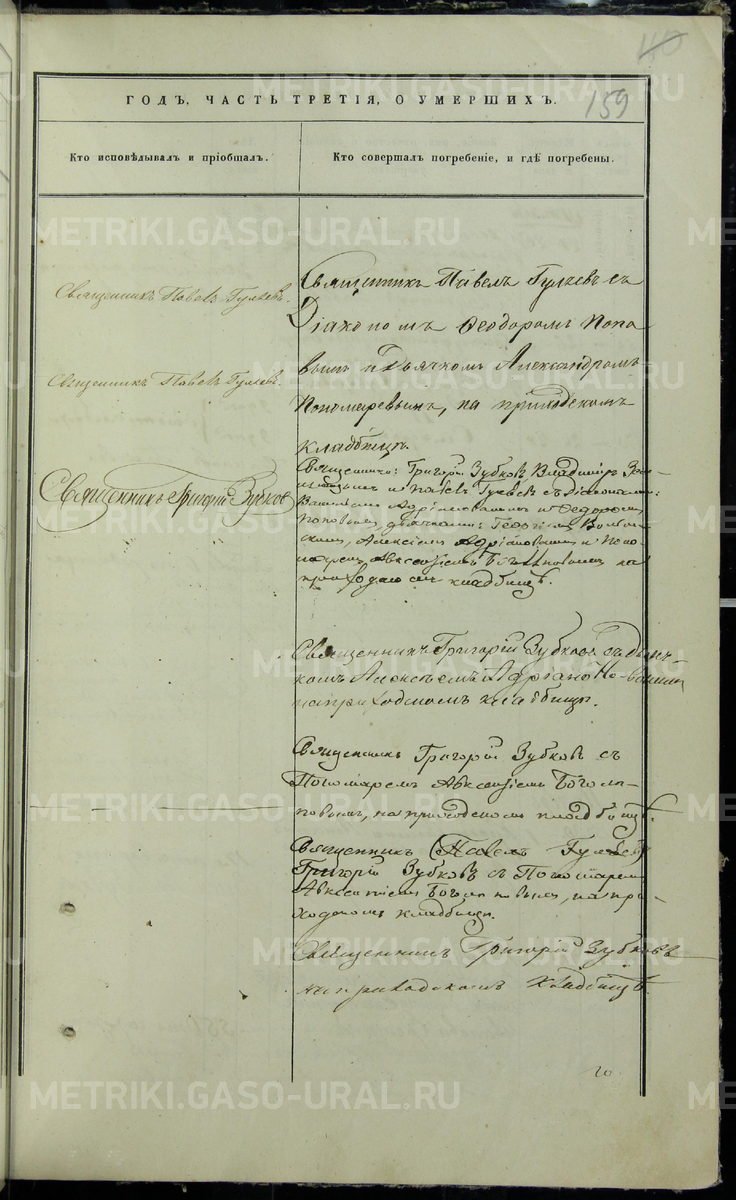 40
159
ГОДЪ, ЧАСТЬ ТРЕТІЯ, О УМЕРШИХЪ.
Кто исповѣдывалъ и пріобщалъ.
Кто совершалъ погребеніе, и гдѣ погребены.
Священникъ Павелъ Гуляевъ.
Священникъ Павелъ Гуляевъ.
Священникъ Григорій Зубковъ
Священникъ Павелъ Гуляевъ съ
Діакономъ Феодоромъ Попо
вымъ и Дьячкомъ Александромъ
Пономаревымъ, на приходскомъ
кладбищѣ.
Священники: Григорій Зубковъ Владиміръ
и Павелъ Гуляевъ съ Діаконами:
Адріановымъ и Федоромъ
Поповымъ, дьячками: Георгіемъ
Алексіемъ Адріановымъ и Поно
маремъ Авксентіемъ на
приходскомъ кладбищѣ.
Священникъ Григорій Зубковъ съ дьяч
комъ Алексѣемъ Адріановымъ
на приходскомъ кладбищѣ.
Священникъ Григорій Зубковъ съ
Пономаремъ Авксентіемъ Богол
повымъ, на приходскомъ кладбищѣ.
Священникъ (Павелъ Гуляевъ)
Григорій Зубковъ съ Пономаремъ
Авксентіемъ на при-
ходскомъ кладбищѣ.
Священникъ Григорій Зубковъ
на приходскомъ кладбищѣ.
METRIKI.GASO-URAL.RU